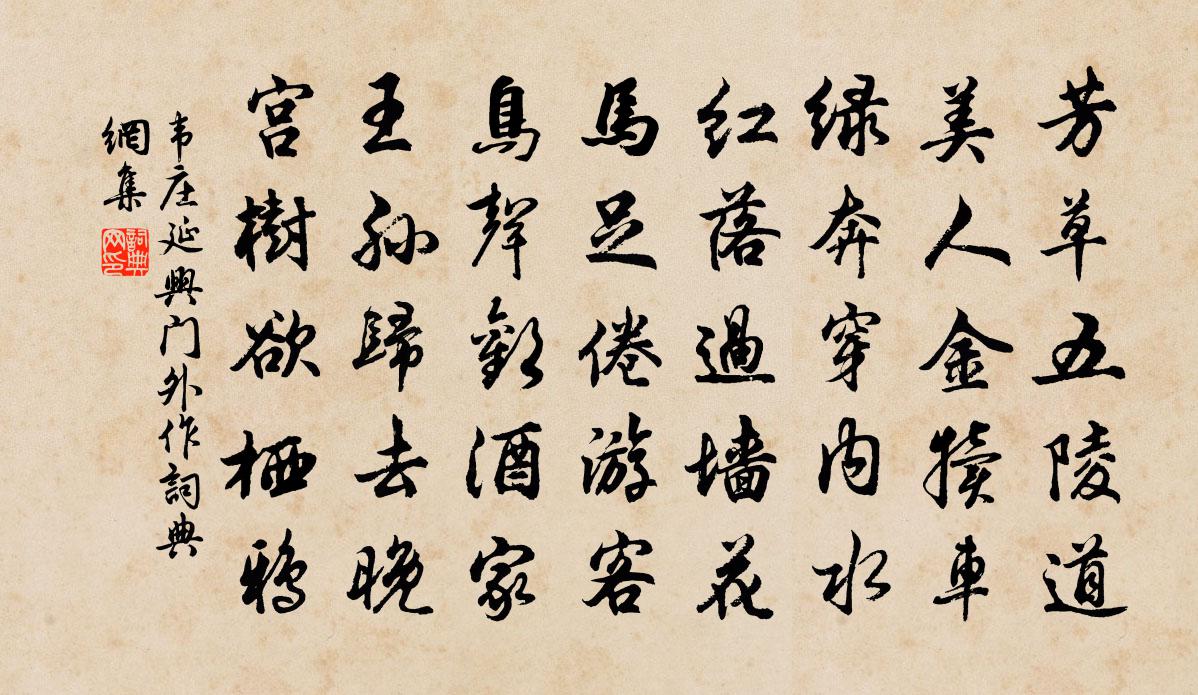 芳草五陵道
美人金犢車
绿奔穿内水
红落過墙花
馬足倦游客
鳥聲歡酒家
王孙歸去晚
宫樹欲栖鸦
韦庄延興门外作詞典
網集
詞典网印